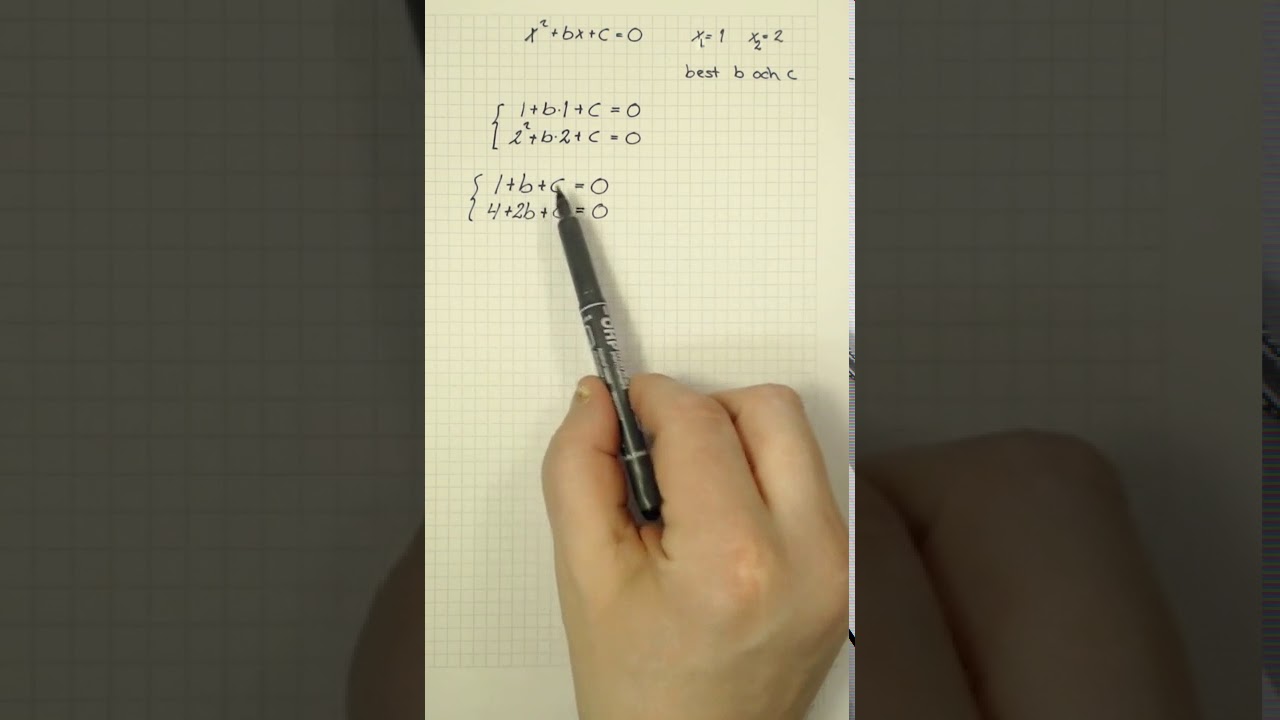 x² + bx + c = 0 x₁ = 1 x₂ = 2
best b och c
1 + b·1 + c = 0
2² + b·2 + c = 0
1 + b + c = 0
4 + 2b + c = 0
OHP